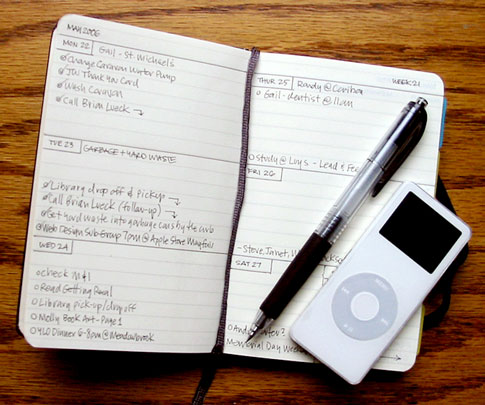 MAY 2006
MON 22 Gail - St. Michael's
Change Caravan Water Pump
JDu Thank You Card
Wash Caravan
Call Brian Lueck
TUE 23 GARBAGE + YARD WASTE
Library drop off & Pickup
Call Brian Lueck (follow-up)
Get yard waste into garbage cans by the curb
Web Design Sub-Group 7pm @ Apple Store Mayfair
WED 24
check
Read Getting Real
Library pick-up/drop off
Molly Book Art - Page 1
Dinner 6-8pm @ Meadowbrook
THUR 25 Randy @ Caribou WEEK 21
Gail - dentist @
Study @ - Lead &
FRI 26
- Steve, Janet,
SAT 27
Memorial Day
MENU